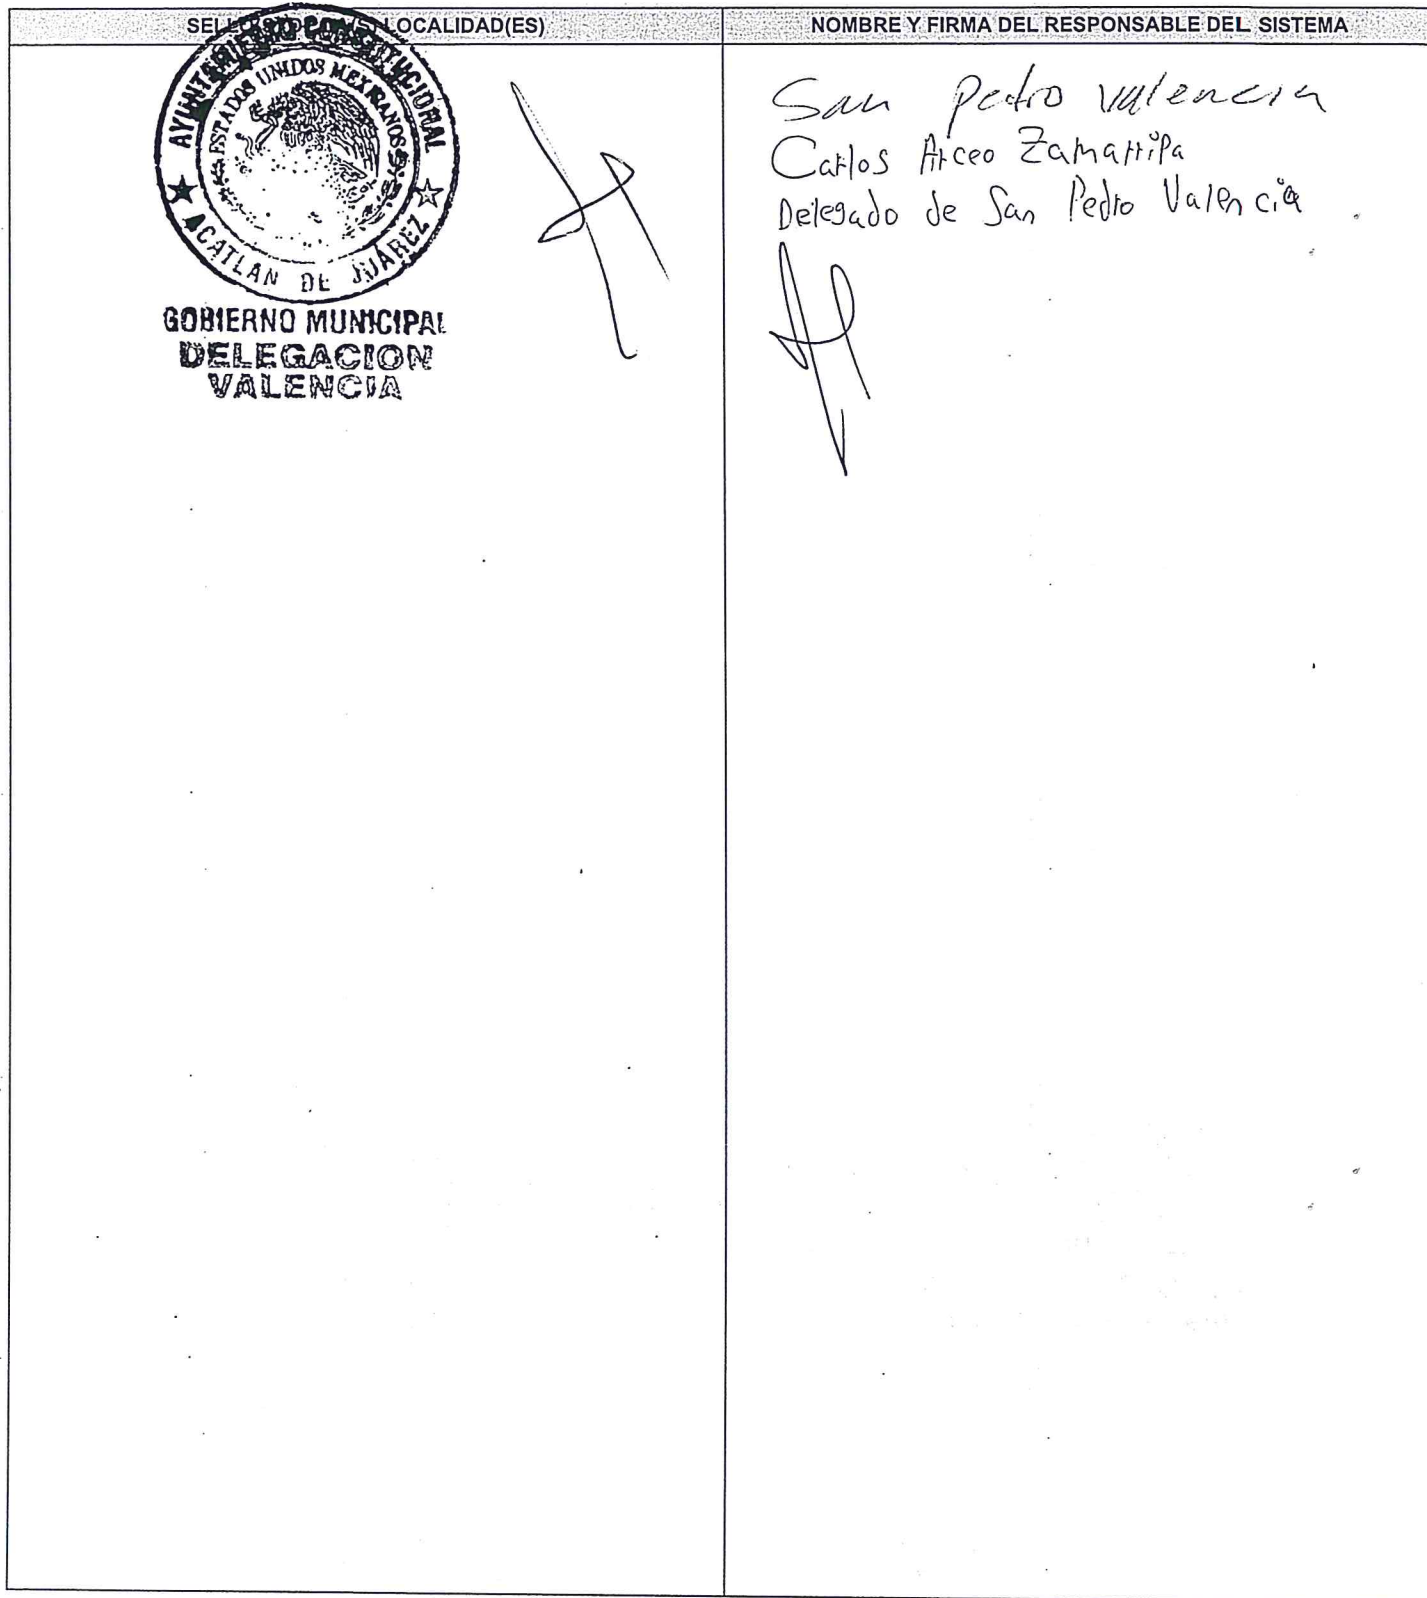 LOCALIDAD(ES)
NOMBRE Y FIRMA DEL RESPONSABLE DEL SISTEMA
AYUNTAMIENTO CONSTITUCIONAL
ESTADOS UNIDOS MEXICANOS
ACATLAN DE JUÁREZ
GOBIERNO MUNICIPAL
DELEGACION
VALENCIA
San Pedro Valencia
Carlos Arceo Zamarripa
Delegado de San Pedro Valencia